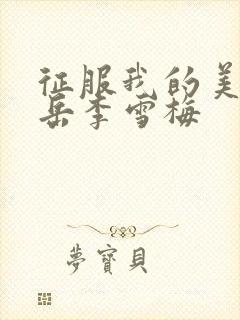 征服我的美
岳李雪梅
梦寶貝